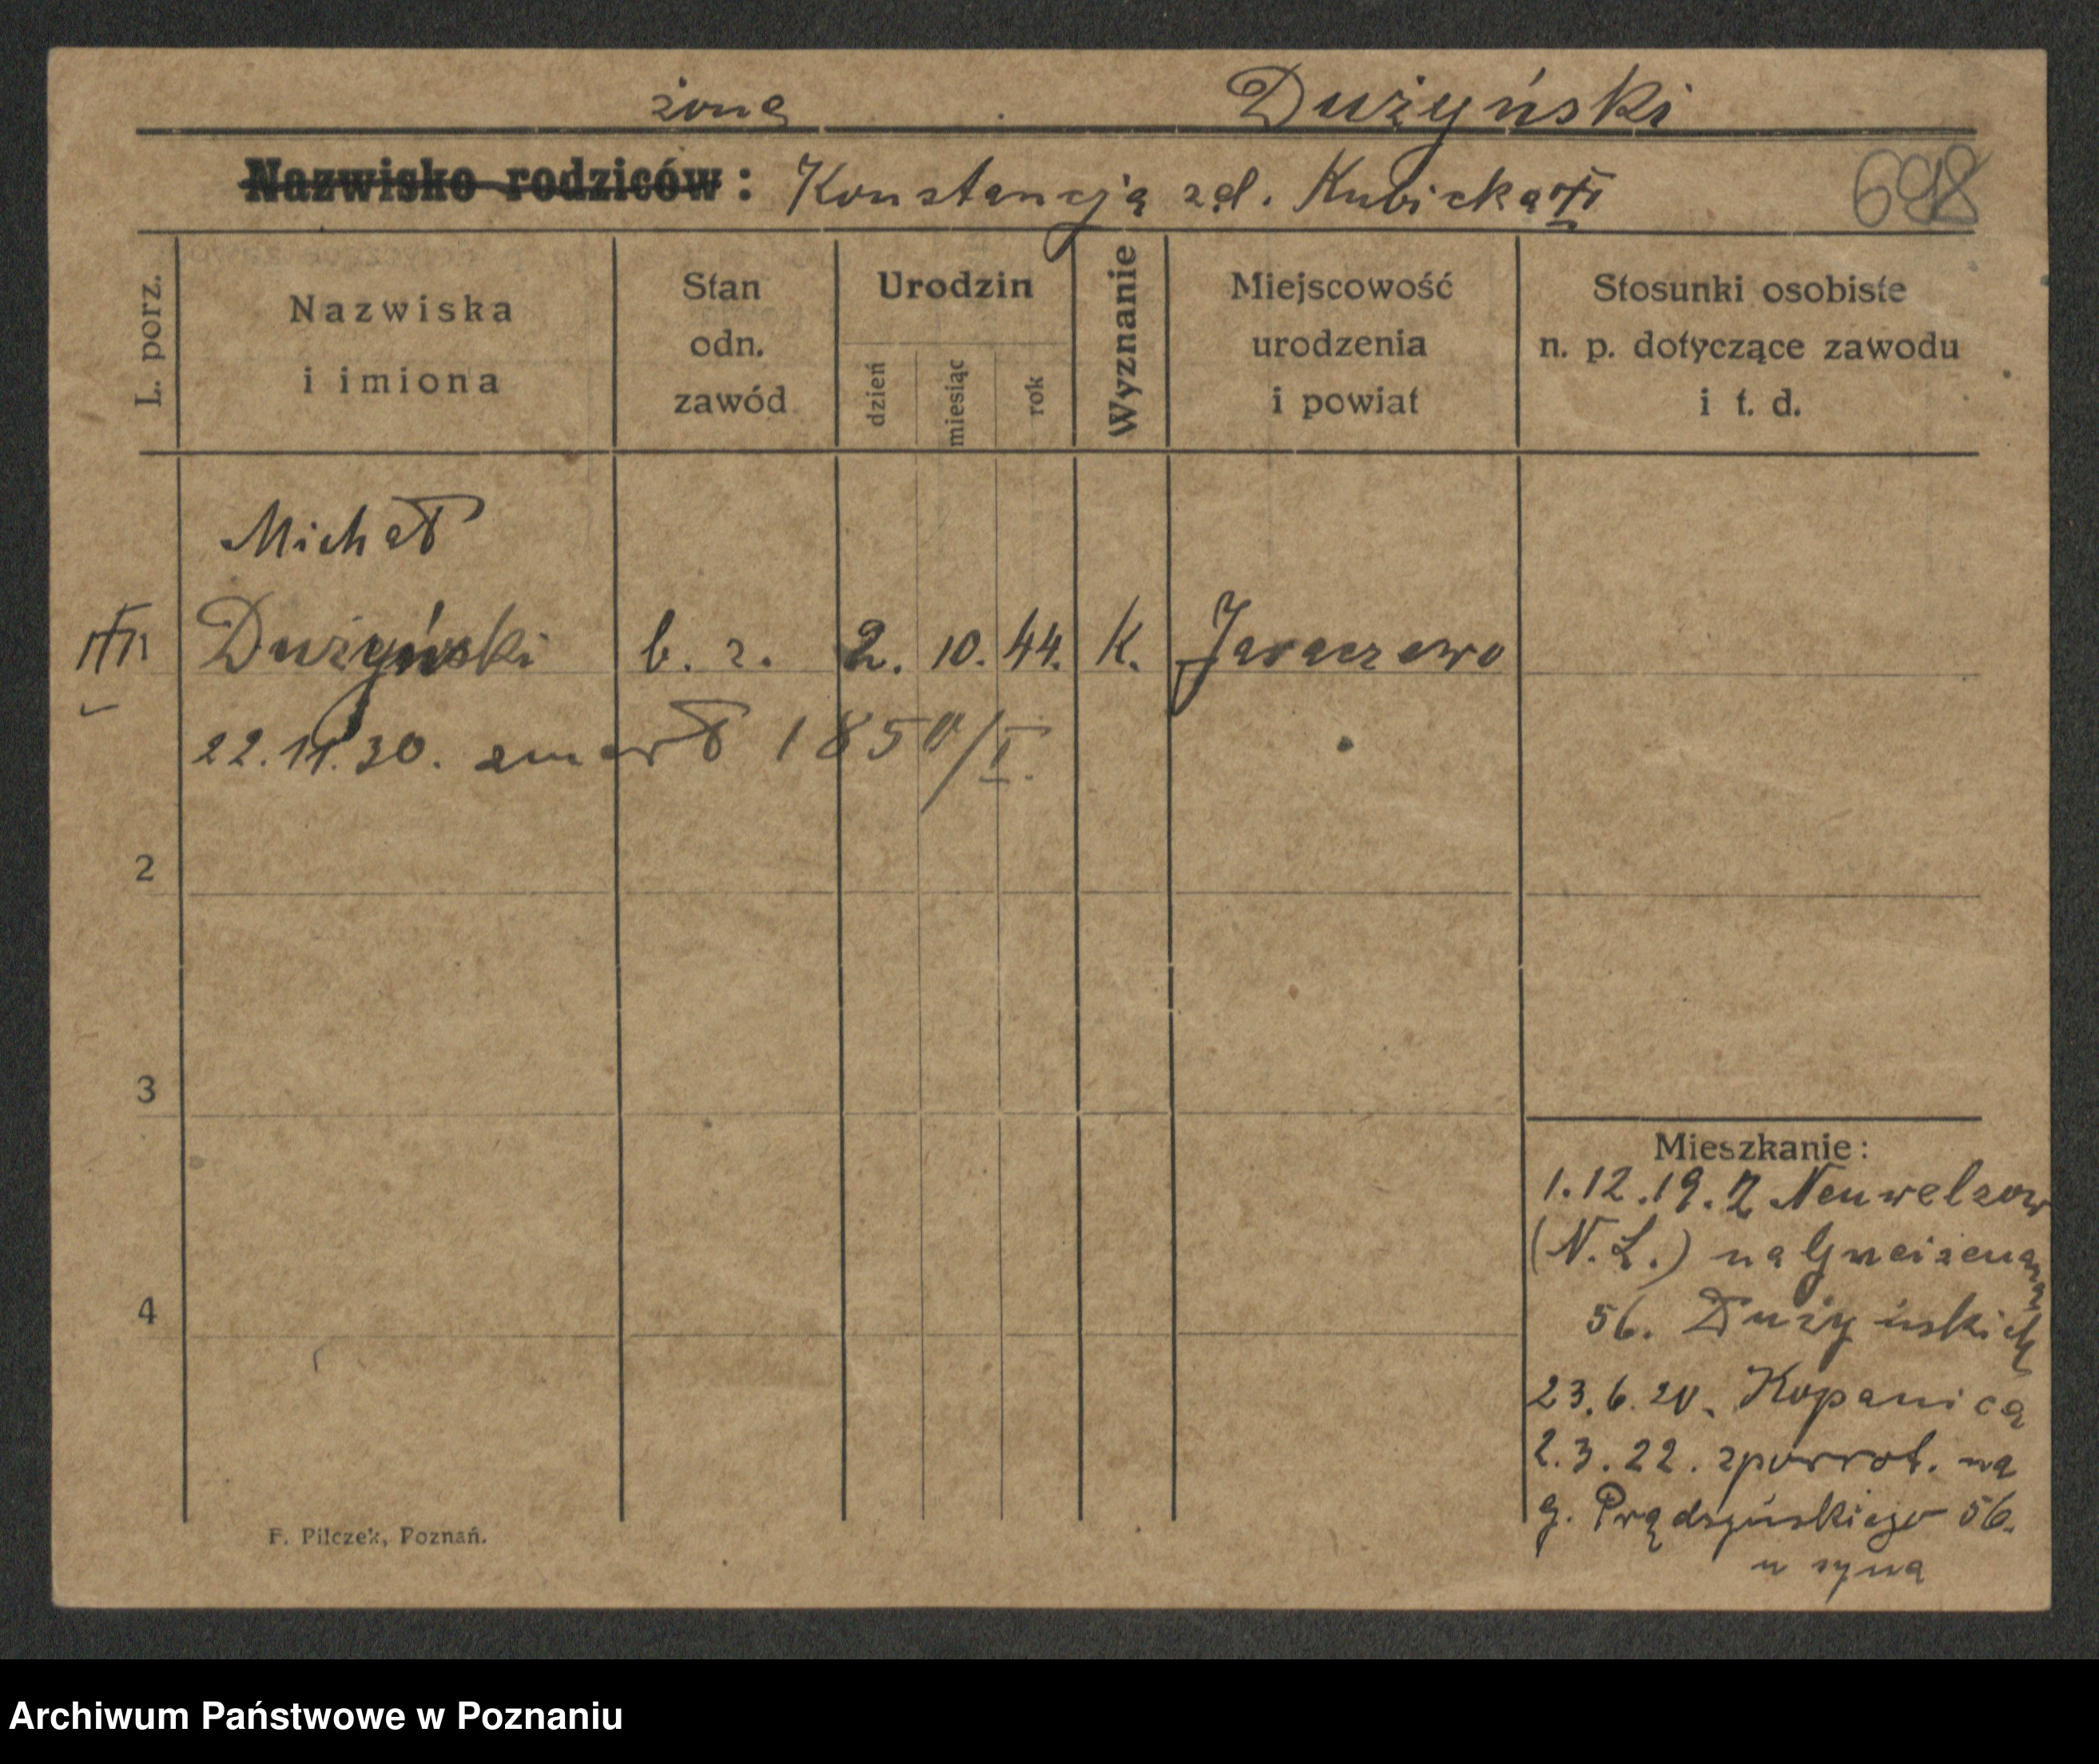 żona Dużyński
Nazwisko rodziców: Konstancja zd. Kubicka
698
L. porz.
Nazwiska
i imiona
Stan
odn.
zawód
Urodzin
dzień
miesiąc
rok
Wyznanie
Miejscowość
urodzenia
i powiat
Stosunki osobiste
n. p. dotyczące zawodu
i t. d.
Michał
Dużyński b. z. 2. 10. 44. K. Jaraczewo
22.11.30. zmarł 1850/I.
2
3
4
Mieszkanie:
1.12.19. z Neuwelzow
(N.L.) na Gneizenau
56. Dużyńskich
23.6.20. Kopanica
2.3.22. zpowrot. na
g. Prądzyńskiego 56.
u syna
F. Pilczek, Poznań.
Archiwum Państwowe w Poznaniu